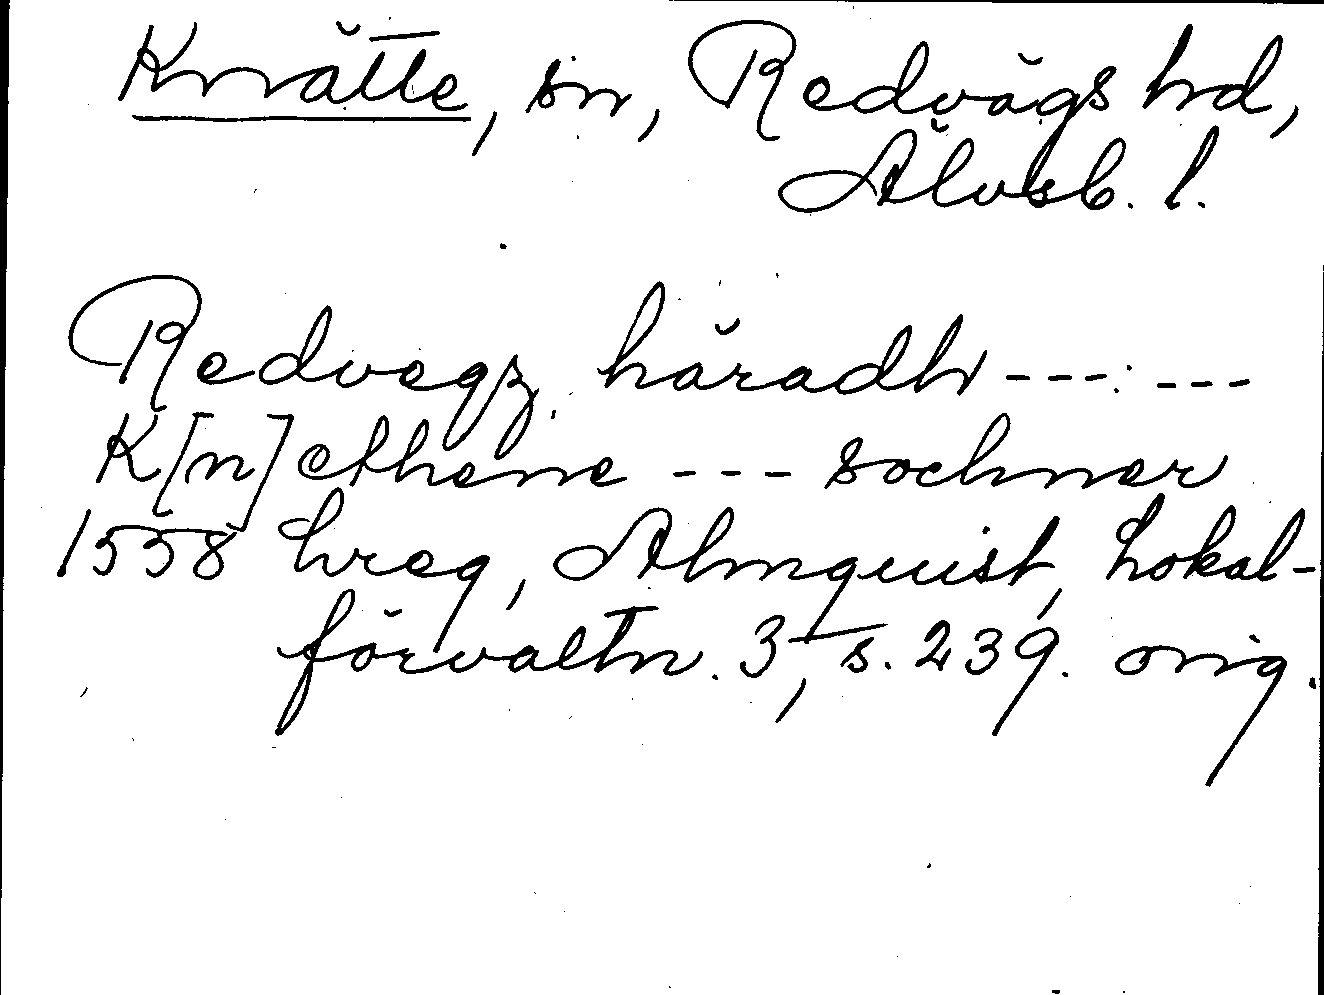 Knätte, sn, Redvägs hd,
Älvsb. l.
Redvegz häradh --- ---
K[n]ethene --- sochner
1558 hreg, Almquist, Lokal-
förvaltn. 3, s. 239. orig.